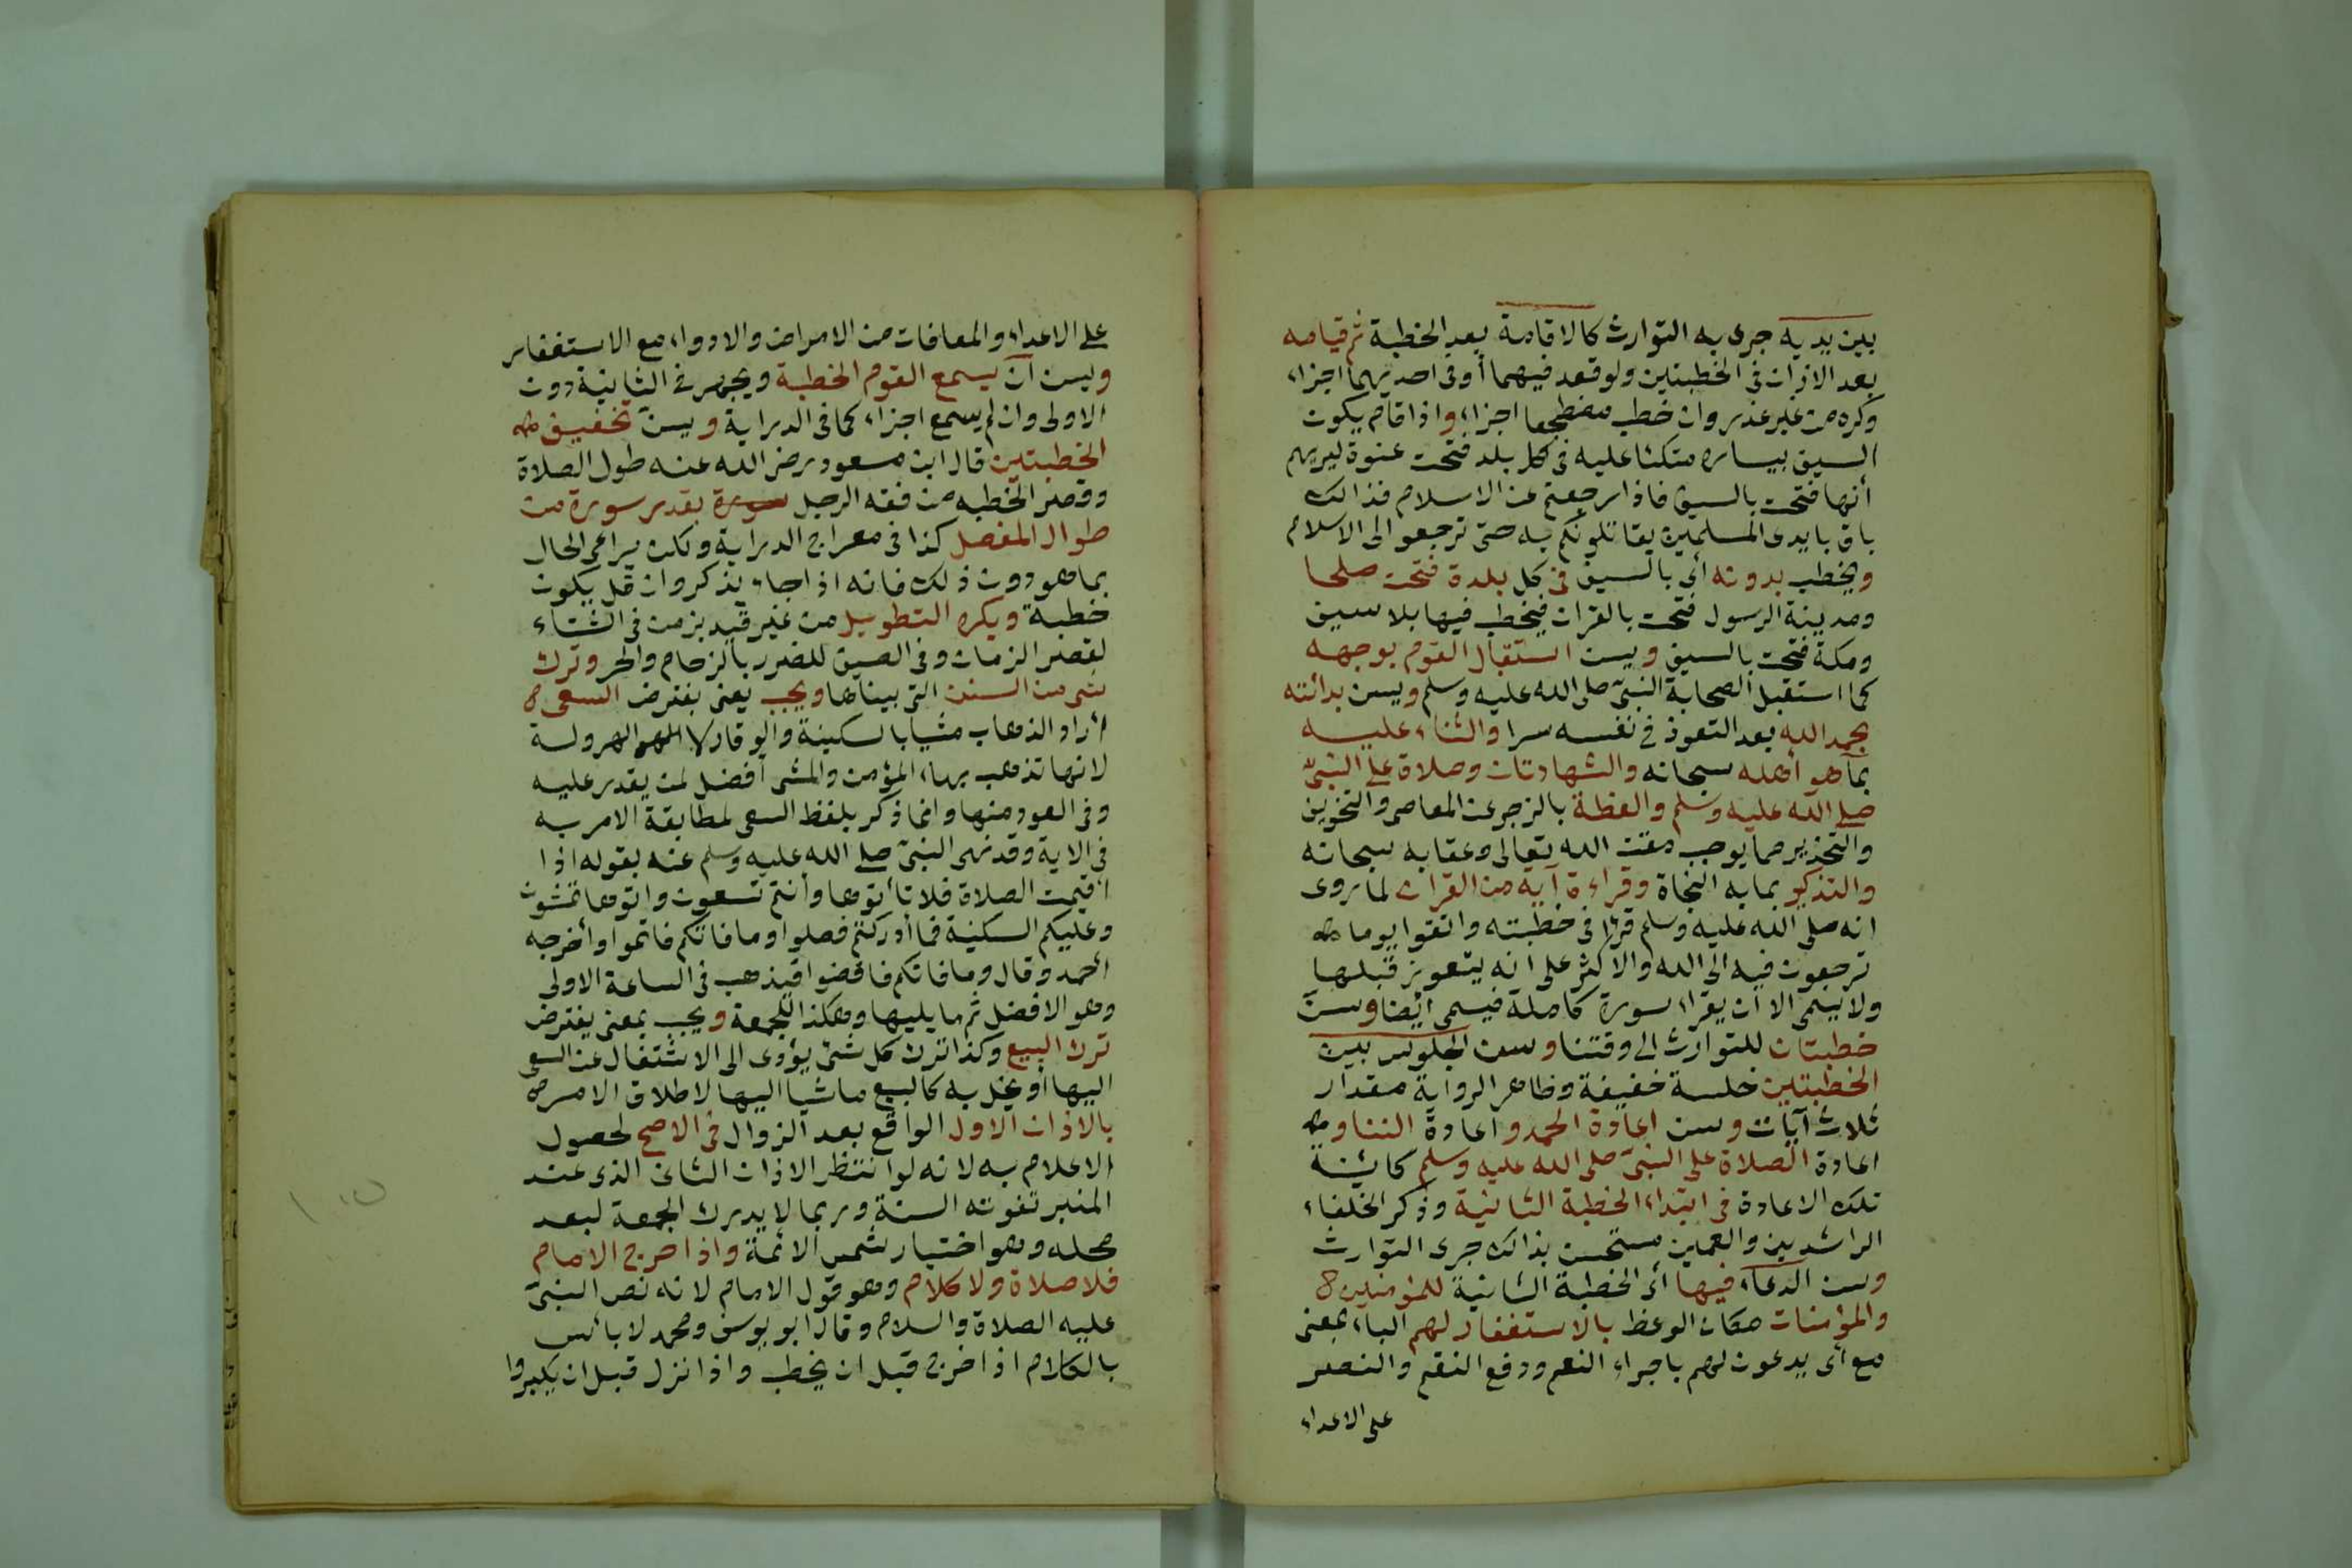 بين يديه جرى به التوارث كالاقامة بعد الخطبة ثم قيامه
بعد الاذان فى الخطبتين ولو قعد فيهما أوفى احديهما اجزاء
وكره من غير عذر وان خطب مضطجعا اجزاء واذا قام يكون
السيف بيساره متكئا عليه فى كل بلد فتحت عنوة ليريهم
أنها فتحت بالسيف فاذا رجعتم عن الاسلام فذالك
باق بايدى المسلمين يقاتلونكم به حتى ترجعوا الى الاسلام
ويخطب بدونه أى بالسيف فى كل بلدة فتحت صلحا
ومدينة الرسول فتحت بالقران فيخطب فيها بلا سيف
ومكة فتحت بالسيف ويسن استقبال القوم بوجهه
كما استقبل الصحابة النبى صلى الله عليه وسلم ويسن بدائته
بحمد الله بعد التعوذ فى نفسه سرا والثناء عليه
بما هو أهله سبحانه والشهادتان وصلاة على النبى
صلى الله عليه وسلم والعظة بالزجر عن المعاصى والتخويف
والتحذير مما يوجب مقت الله تعالى وعقابه سبحانه
والتذكير بما به النجاة وقراءة آية من القران لما روى
انه صلى الله عليه وسلم قرا فى خطبته واتقوا يوما
ترجعون فيه الى الله والاكثر على انه يتعوذ قبلها
ولا يسمى الا ان يقرا سورة كاملة فيسمى أيضا وسن
خطبتان للتوارث الى وقتنا وسن الجلوس بين
الخطبتين جلسة خفيفة وظاهر الرواية مقدار
ثلاث آيات وسن اعادة الحمد واعادة الثنا و
اعادة الصلاة على النبى صلى الله عليه وسلم كائنة
تلك الاعادة فى ابتداء الخطبة الثانية وذكر الخلفاء
الراشدين والعمين مستحسن بذالك جرى التوارث
وسن الدعاء فيها أى الخطبة الثانية للمؤمنين
والمؤمنات مكان الوعظ بالاستغفار لهم الباء بمعنى
مع أى يدعون لهم باجراء النعم ودفع النقم والنصر
على الاعداء
على الاعداء والمعافات من الامراض والادواء مع الاستغفار
ويسن أن يسمع القوم الخطبة ويجهر فى الثانية دون
الاولى وان لم يسمع اجزاء كما فى الدراية ويسن تخفيف
الخطبتين قال ابن مسعود رضى الله عنه طول الصلاة
وقصر الخطبه من فقه الرجل سورة بقدر سورة من
طوال المفصل كذا فى معراج الدراية ولكن يراعى الحال
بما هو دون ذلك فانه اذا جاء بذكر وان قل يكون
خطبة ويكره التطويل من غير قيد بزمن فى الشتاء
لقصر الزمان وفى الصيف للضرر بالزحام والحر وترك
شى من السنن التى بيناها ويجب يعنى يفترض السعى
أراد الذهاب مشيا بالسكينة والوقار لا الهرولة
لانها تذهب بهاء المؤمن والمشى أفضل لمن يقدر عليه
وفى العود منها وانما ذكر بلفظ السعى لمطابقة الامر به
فى الاية وقد نهى النبى صلى الله عليه وسلم عنه بقوله اذا
أقيمت الصلاة فلا تأتوها وأنتم تسعون واتوها تمشون
وعليكم السكينة فما أدركتم فصلوا وما فاتكم فاتموا وأخرجه
أحمد وقال وما فاتكم فاقضوا فيذهب فى الساعة الاولى
وهو الافضل ثم ما يليها وهكذا للجمعة ويجب بمعنى يفترض
ترك البيع وكذا ترك كل شئ يؤدى الى الاشتغال عن السعى
اليها أو يخل به كالبيع ماشيا اليها لاطلاق الامر
بالاذان الاول الواقع بعد الزوال فى الاصح لحصول
الاعلام به لانه لو انتظر الاذان الثانى الذى عند
المنبر تفوته السنة وربما لا يدرك الجمعة لبعد
محله وهو اختيار شمس الائمة واذا خرج الامام
فلا صلاة ولا كلام وهو قول الامام لانه نص النبى
عليه الصلاة والسلام وقال ابو يوسف ومحمد لا بأس
بالكلام اذا خرج قبل ان يخطب واذا نزل قبل ان يكبروا